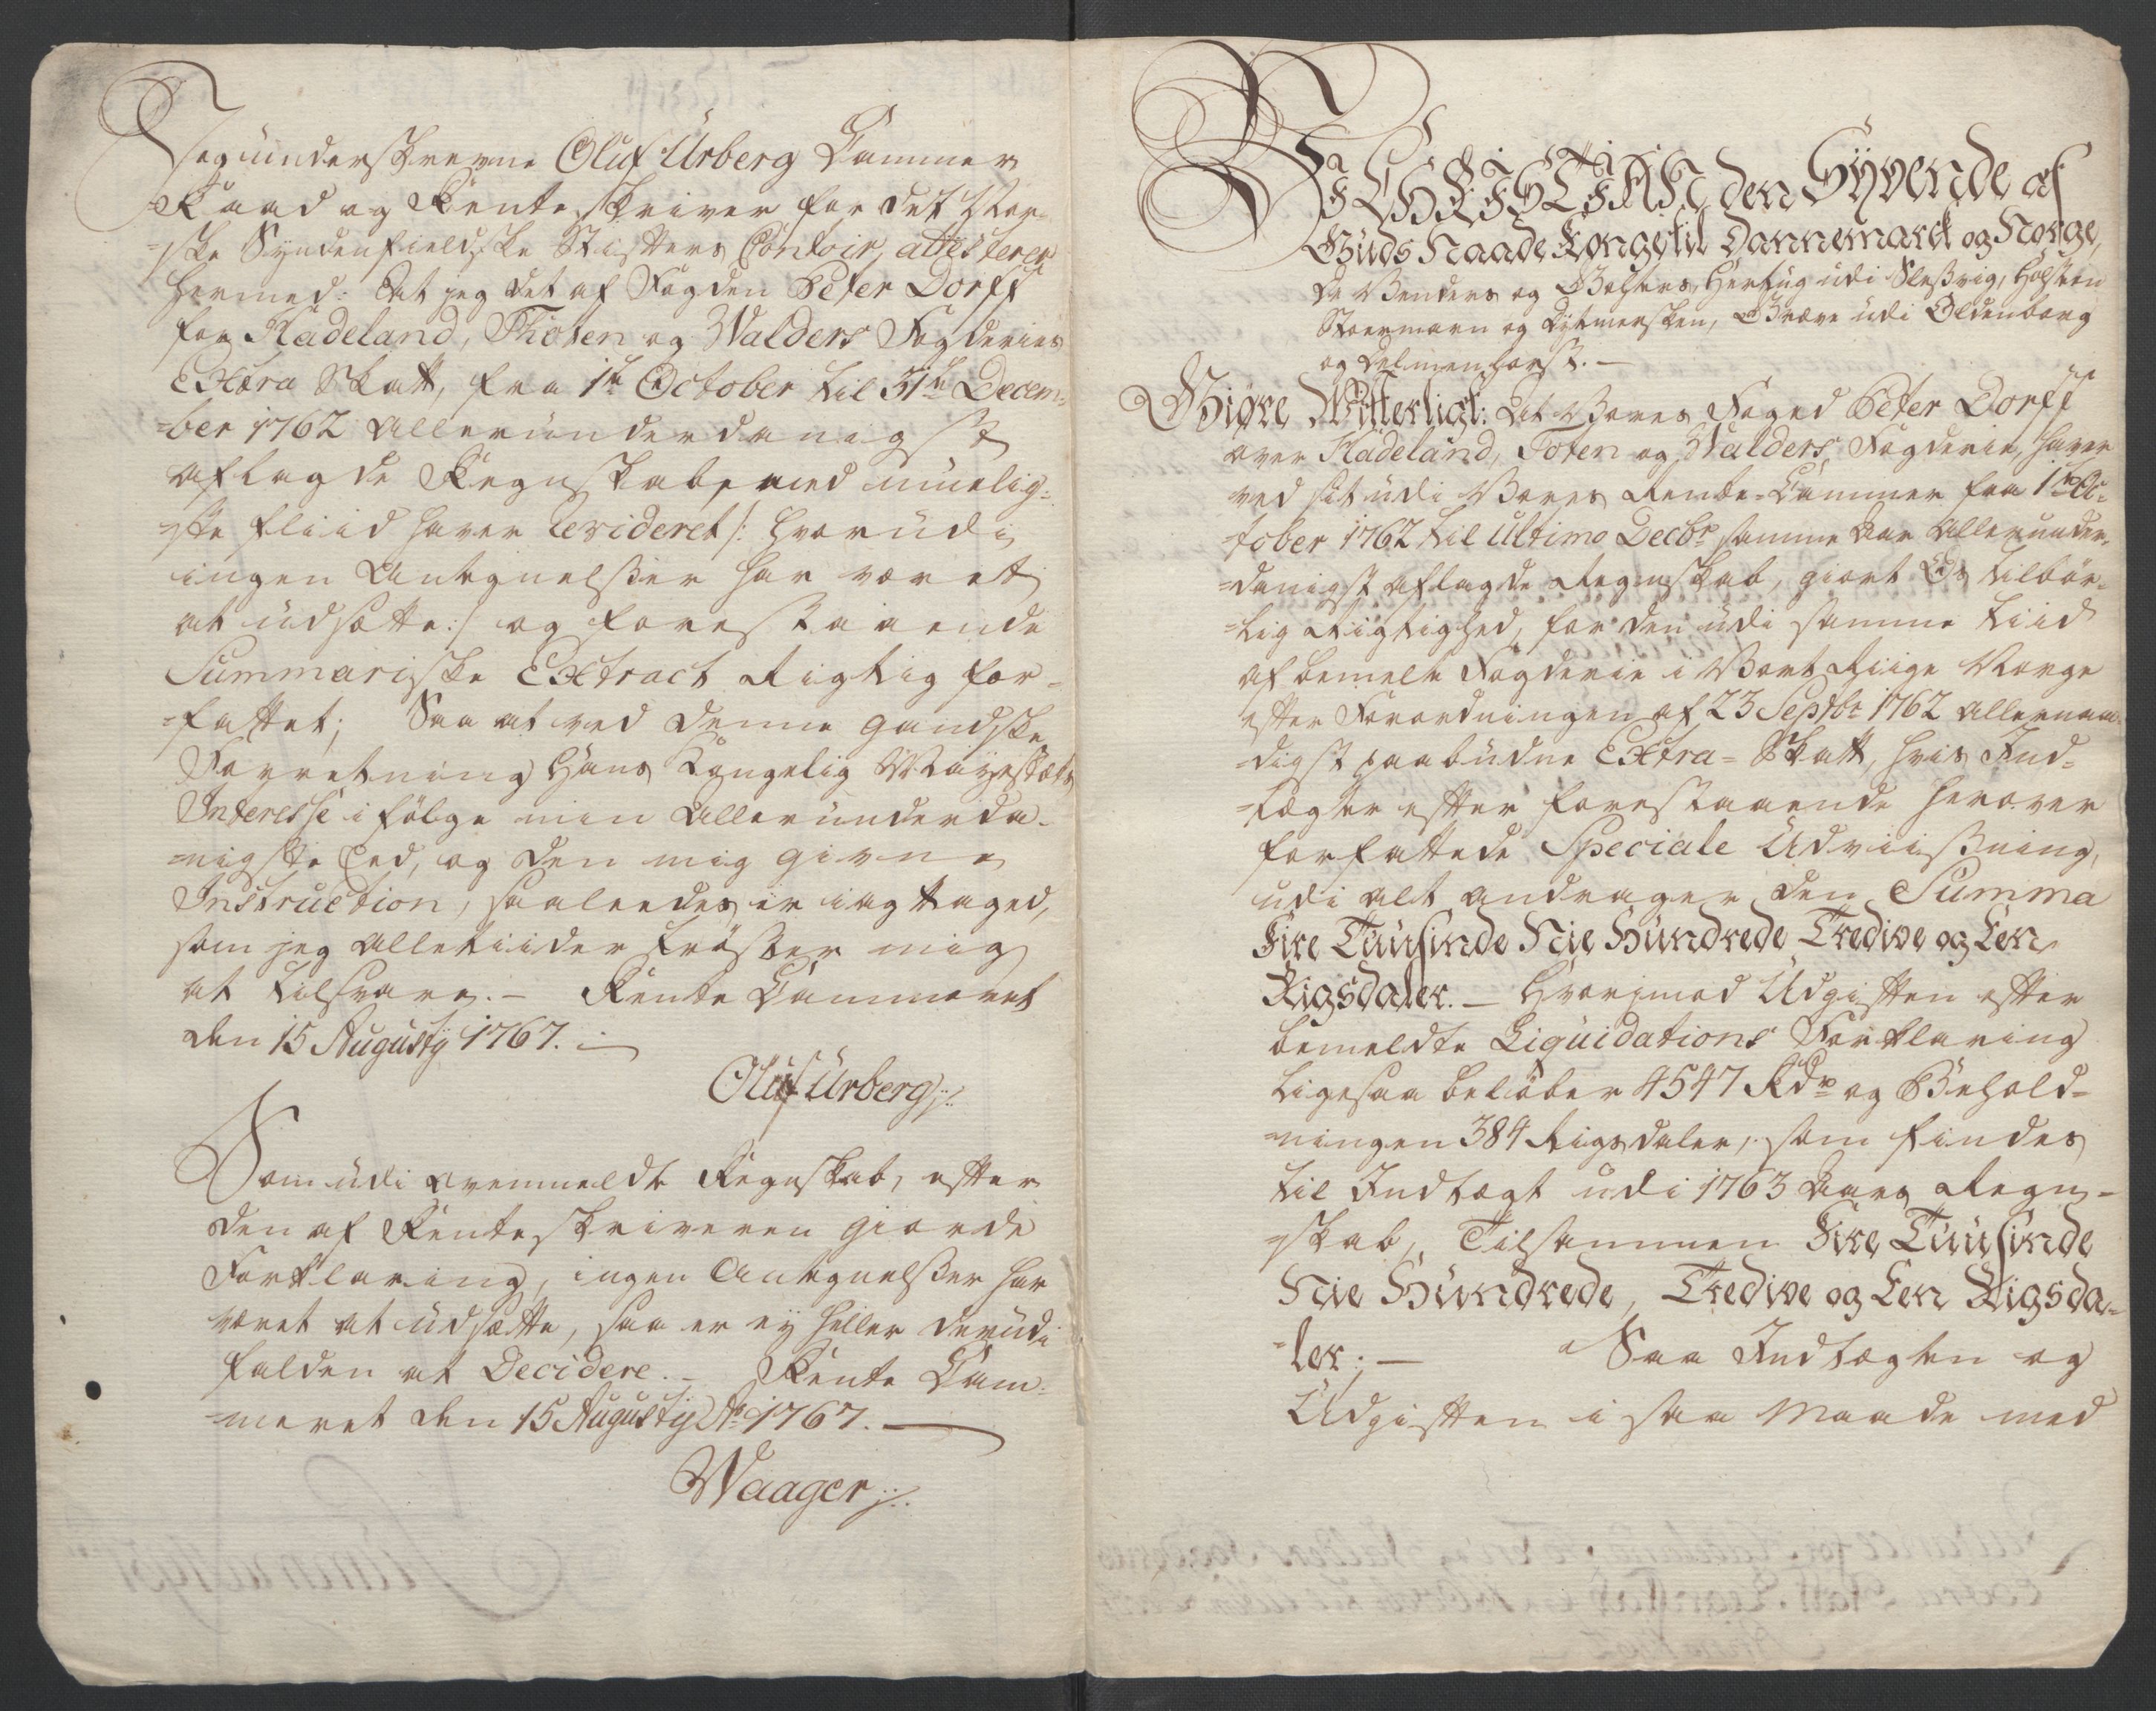 Jeg underskrevne Oluf Urberg Cammer
Raad og Rente-skriver for det Nor-
=ske Syndenfieldske Stifters Contoir, attesterer
hermed: At jeg det af Fogden Peter Dorff
for Hadeland, Thoten og Walders Fogderies
Extra Skatt, fra 1te October til 31te Decem-
=ber 1762 allerunderdanigst
aflagde Regnskab, med muelig-
=ste fliid haver Revideret /: hvorudi
ingen Antegnelsser har været
at udsætte :/ og forestaaende
Summariske Extract Rigtig for-
=fattet; Saa at ved denne gandske
Forretning Hans Kongelig Mayestæts
Interesse i følge min allerunderda-
=nigste Eed, og den mig givne
Instruction, saaleedes er iagttaged,
som jeg alletiider trøster mig
at tilsvare. – Rente Cammeret
den 15 Augusty 1767. –
Oluf Urberg
Som udi ovenmeldte Regnskab, efter
den af Renteskriveren giorde
Forklaring, ingen Antegnelsser har
været at udsætte, saa er ey heller derudi
falden at Decidere. – Rente Cam-
=meret den 15 Augustij Ao 1767. –
Waager
Wi CHRISTIAN den Syvende af
Guds Naade Konge til Dannemarck og Norge,
De Wenders og Gothers, Hertug udi Slesvig, Holsten
Stormarn og Dytmersken, Greve udi Oldenborg
og Delmenhorst. –
Giøre Witterligt: At Vores Foged Peter Dorff
over Hadeland, Toten og Walders Fogderie, haver
ved sit udi Vores Rente-Cammer fra 1te Oc-
=tober 1762 til Ultimo Decbr samme Aar allerunder-
=danigst aflagde Regnskab, giort Os tilbør-
=lig Rigtighed, for den udi samme tiid
af bemelte Fogderie i Vort Riige Norge
efter Forordningen af 23 Septbr 1762 allernaa-
=digst paabudne Extra-Skatt, hvis Ind-
=tægter efter forestaaende herover
forfattede Speciale Udviissning,
udi alt andrager den Summa
Fire Tuusinde Nie Hundrede Tredive og Een
Rigsdaler. – Hvorimod Udgiften efter
bemeldte Liquidations Forklaring
ligesaa beløber 4547 Rdr og Behold-
=ningen 384 Rigsdaler, som findes
til Indtægt udi 1763 Aars Regn-
=skab, Tilsammen Fire Tuusinde
Nie Hundrede, Tredive og Een Rigsda-
=ler; – Saa Indtægten og
Udgiften i saa Maade med